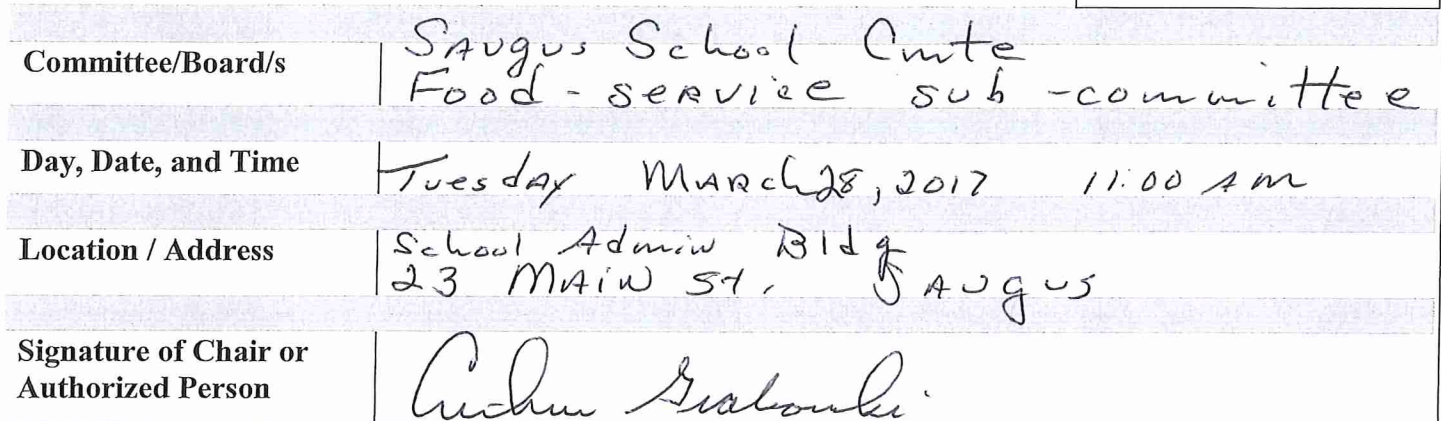 Committee/Board/s
Saugus School Cmte
Food - service sub - committee
Day, Date, and Time
Tuesday March 28, 2017 11:00 Am
Location / Address
School Admin Bldg
23 Main St. Saugus
Signature of Chair or
Authorized Person
Grabowski